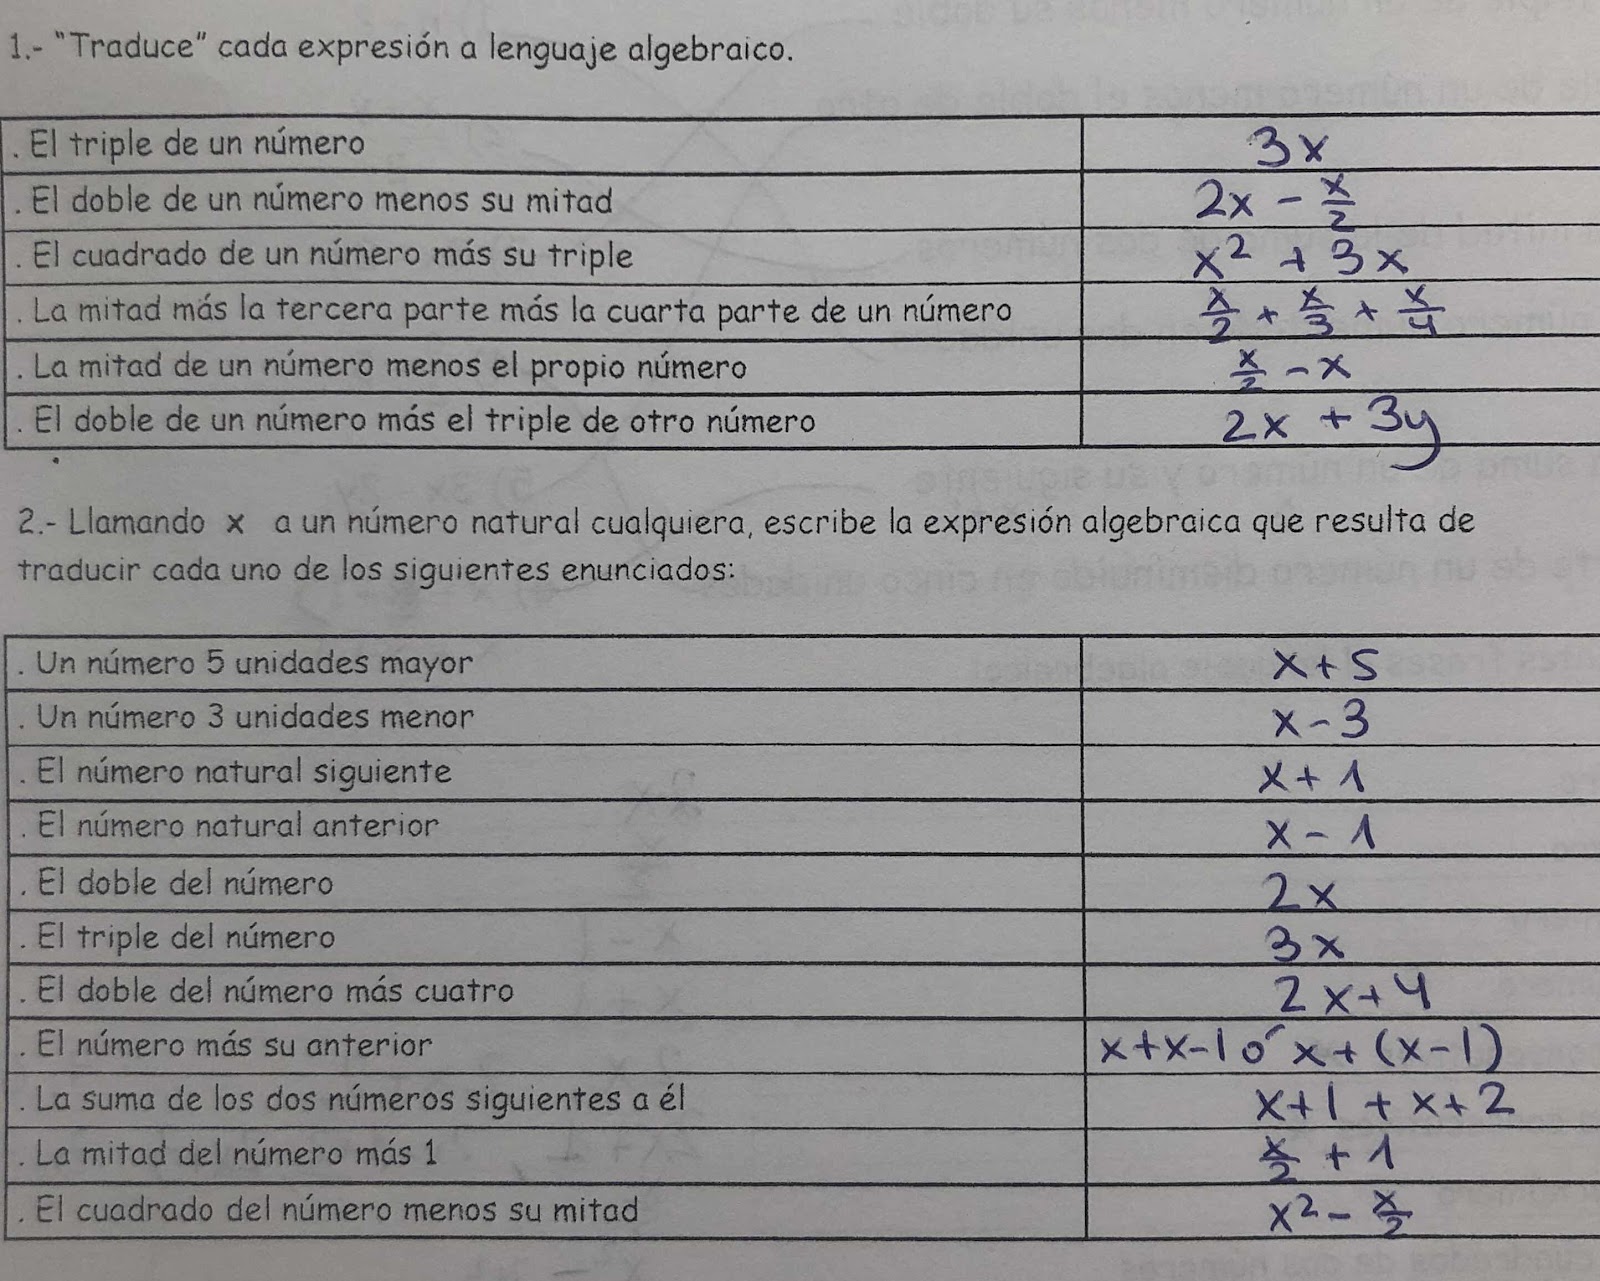 1.- "Traduce" cada expresión a lenguaje algebraico.
. El triple de un número 3x
. El doble de un número menos su mitad 2x - x/2
. El cuadrado de un número más su triple x² + 3x
. La mitad más la tercera parte más la cuarta parte de un número x/2 + x/3 + x/4
. La mitad de un número menos el propio número x/2 - x
. El doble de un número más el triple de otro número 2x + 3y
2.- Llamando x a un número natural cualquiera, escribe la expresión algebraica que resulta de
traducir cada uno de los siguientes enunciados:
. Un número 5 unidades mayor x+5
. Un número 3 unidades menor x-3
. El número natural siguiente x+1
. El número natural anterior x-1
. El doble del número 2x
. El triple del número 3x
. El doble del número más cuatro 2x+4
. El número más su anterior x+x-1 ó x+(x-1)
. La suma de los dos números siguientes a él x+1 + x+2
. La mitad del número más 1 x/2 + 1
. El cuadrado del número menos su mitad x² - x/2